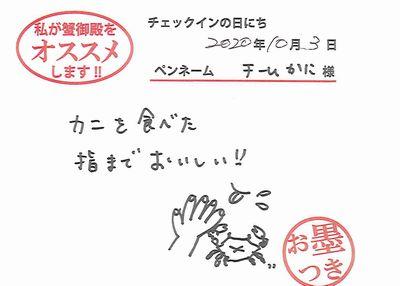 私が蟹御殿を
オススメ
します!!
チェックインの日にち
2020年10月3日
ペンネーム チーム かに 様
カニを食べた
指までおいしい!!
お墨
つき